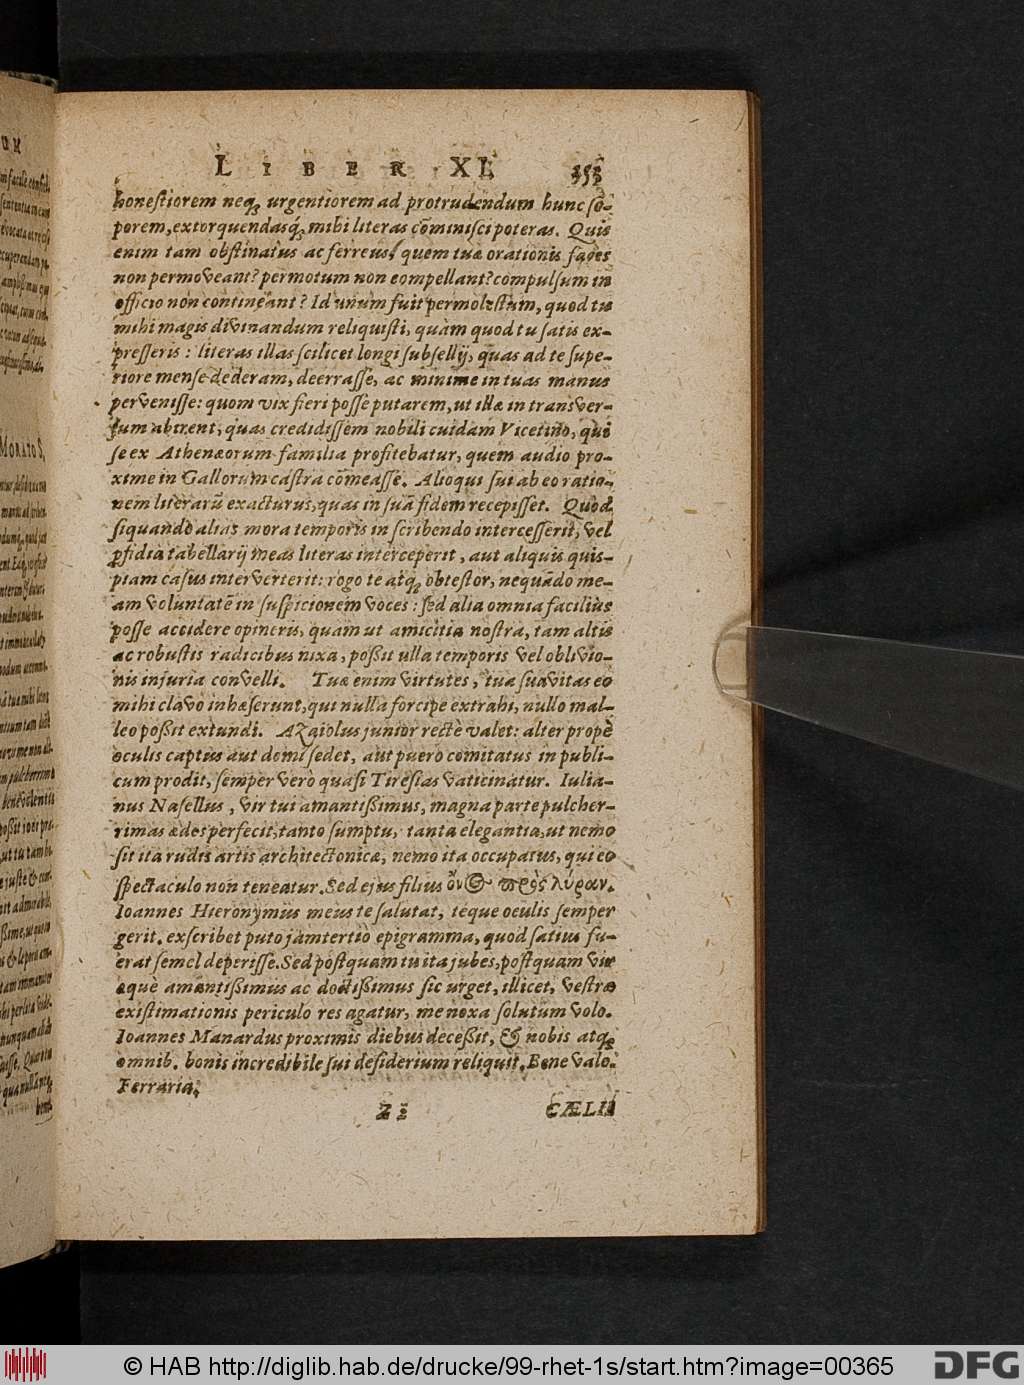 LIBER XI. 353
honestiorem neq; urgentiorem ad protrudendum hunc so-
porem, extorquendasq́; mihi literas cōminisci poteras. Quis
enim tam obstinatus ac ferreus, quem tuæ orationis faces
non permoveant? permotum non compellant? compulsum in
officio non contineant? Id unum fuit permolestum, quod tu
mihi magis divinandum reliquisti, quàm quod tu satis ex-
presseris: literas illas scilicet longi subsellij, quas ad te supe-
riore mense dederam, deerrasse, ac minime in tuas manus
pervenisse: quom vix fieri posse putarem, ut illæ in transver-
sum abirent, quas credidissem nobili cuidam Vicetino, qui
se ex Athenæorum familia profitebatur, quem audio pro-
xime in Gallorum castra cōmeasse. Alioqui fui ab eo ratio-
nem literarū exacturus, quas in suā fidem recepisset. Quod
siquando alias mora temporis in scribendo intercesserit, vel
pfidia tabellarij meas literas interceperit, aut aliquis quis-
piam casus interverterit: rogo te atq; obtestor, nequādo me-
am voluntatē in suspicionem voces: sed alia omnia facilius
posse accidere opineris, quam ut amicitia nostra, tam altis
ac robustis radicibus nixa, possit ulla temporis vel oblivio-
nis injuria convelli. Tuæ enim virtutes, tua suavitas eo
mihi clavo inhæserunt, qui nulla forcipe extrahi, nullo mal-
leo possit extundi. Azaiolus junior rectè valet: alter propè
oculis captus aut domi sedet, aut puero comitatus in publi-
cum prodit, semper verò quasi Tiresias vaticinatur. Iulia-
nus Nasellus, vir tui amantissimus, magna parte pulcher-
rimas ædes perfecit, tanto sumptu, tanta elegantia, ut nemo
sit ita rudis artis architectonicæ, nemo ita occupatus, qui eo
spectaculo non teneatur. Sed ejus filius ὄνος πρὸς λύραν.
Ioannes Hieronymus meus te salutat, teque oculis semper
gerit. exscribet puto jam tertiò epigramma, quod satius fu-
erat semel deperisse. Sed postquam tu ita jubes, postquam vir
æquè amantissimus ac doctissimus sic urget, illicet, vestræ
existimationis periculo res agatur, me noxa solutum volo.
Ioannes Manardus proximis diebus decessit, & nobis atq;
omnib. bonis incredibile sui desiderium reliquit. Bene vale.
Ferrariæ.
Z 3 CÆLII
MORATOS,
© HAB http://diglib.hab.de/drucke/99-rhet-1s/start.htm?image=00365
DFG